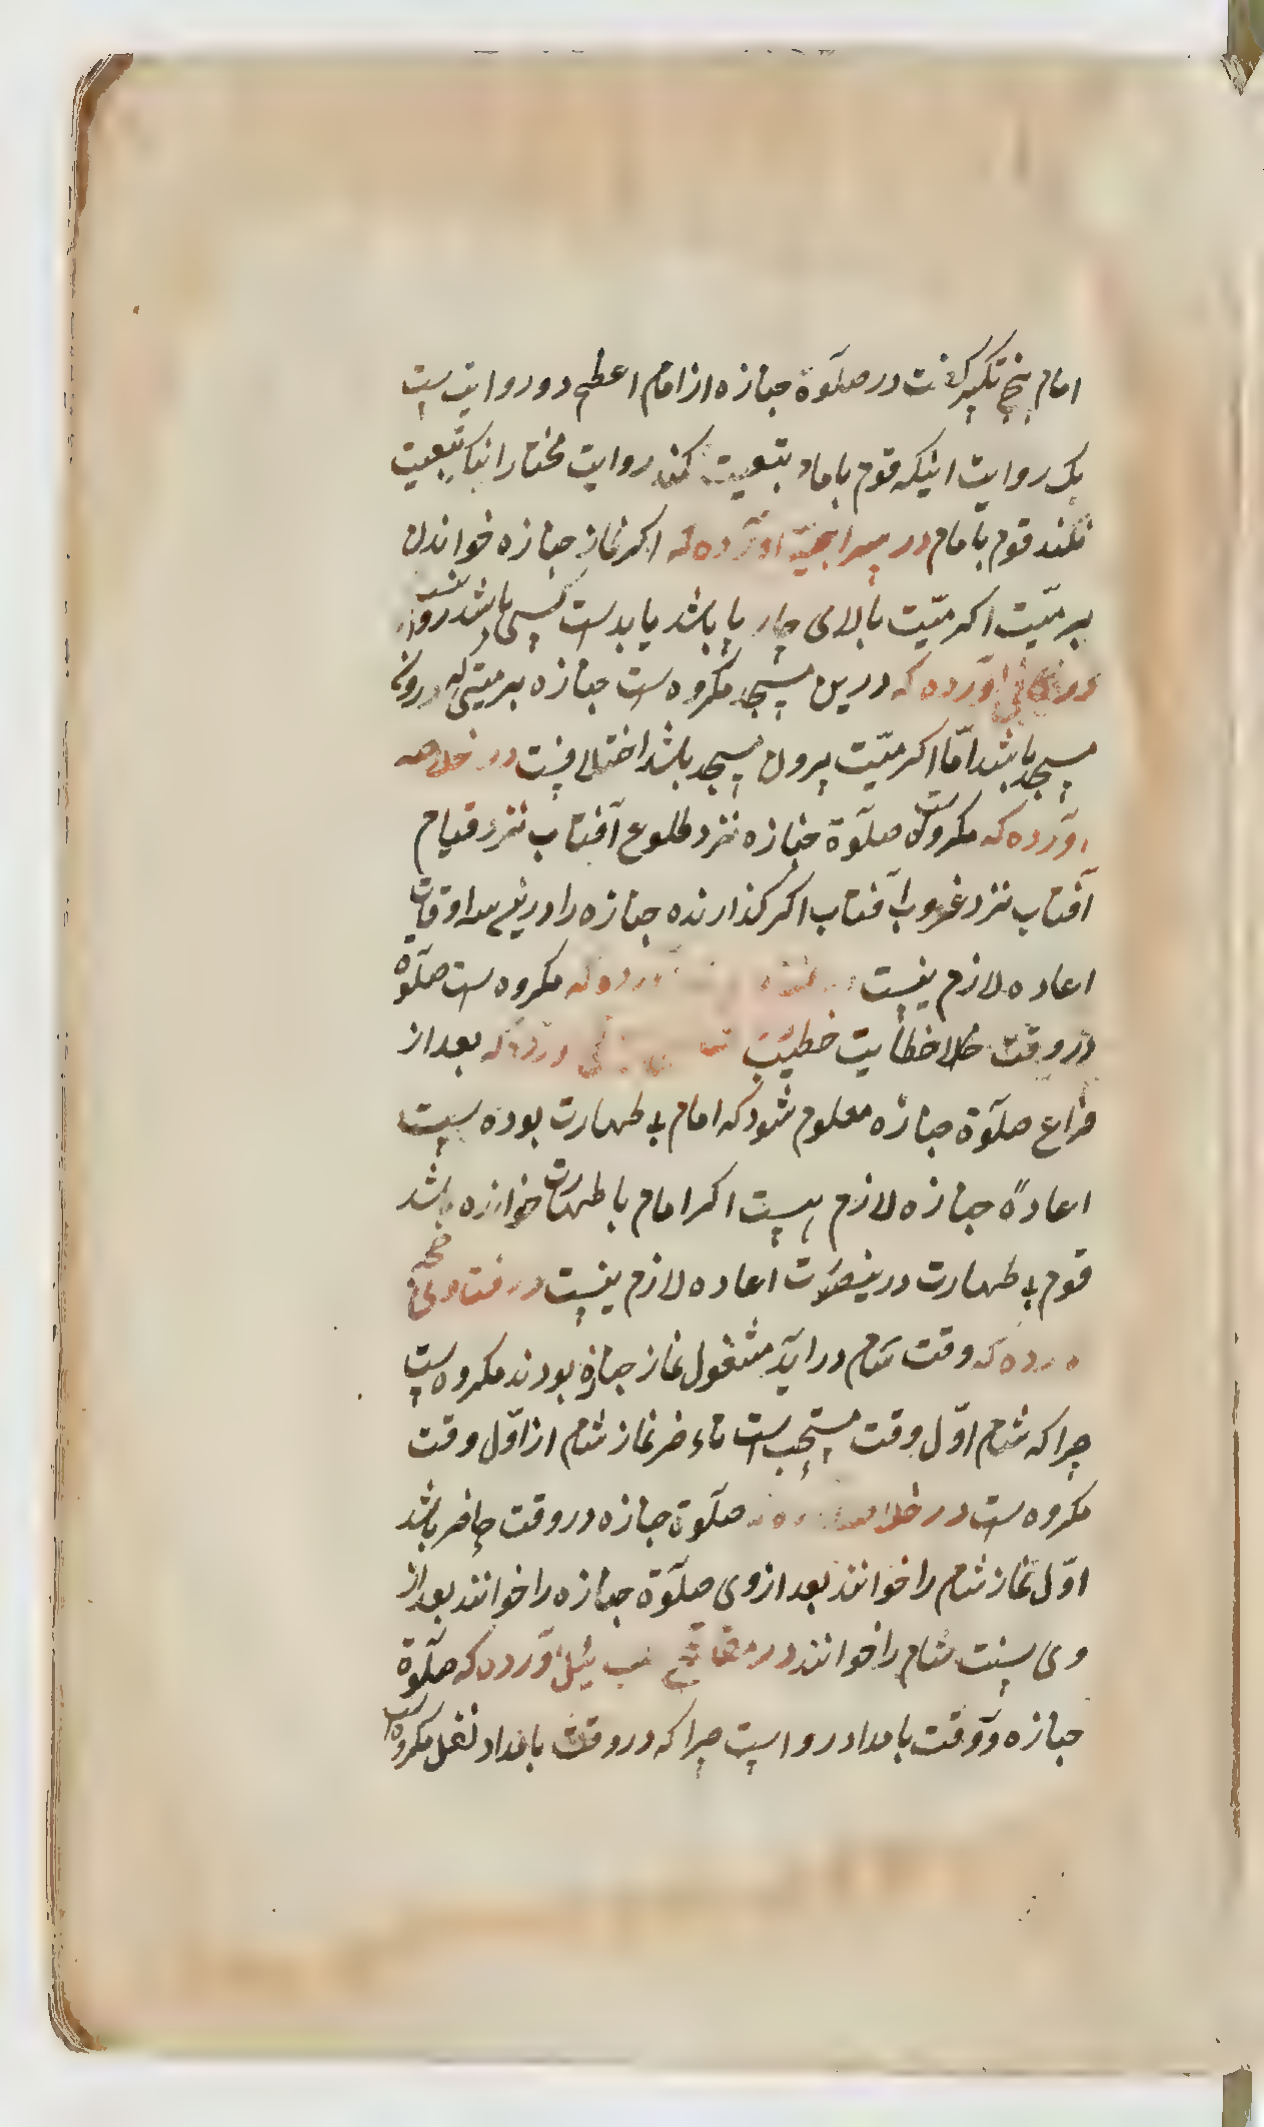 امام پنج تکبیر گفت در صلوٰة جنازه از امام اعظم دو روایت ست
یک روایت اینکه قوم بامام بتبعیت کند روایت مختار اینکه تبعیت
نکند قوم بامام در سراجیه آورده که اکر نماز جنازه خواندن
بر میّت اکر میّت بالای چار پا باشد یا بدست کسی باشد روا نیست
در کافی آورده که درین مسجد مکروه ست جنازه بر میتی که درون
مسجد باشد امّا اکر میّت بیرون مسجد باشد اختلافست در خلاصه
آورده که مکروه ست صلوٰة جنازه نزد طلوع آفتاب نزد قیام
آفتاب نزد غروب آفتاب اکر کذارنده جنازه را درین سه اوقات
اعاده لازم نیست آورده که مکروه ست صلوٰة
در وقت خطبه آورده که بعد از
فراغ صلوٰة جنازه معلوم شود که امام بی طهارت بوده ست
اعادهٔ جنازه لازم ست اکر امام با طهارت خوانده باشد
قوم بی طهارت درینصورت اعاده لازم نیست در فتاوی حجه
آورده که وقت شام در آید مشغول نماز جنازه بودند مکروه ست
چرا که شام اوّل وقت مستحب ست تاءخر نماز شام از اوّل وقت
مکروه ست در خلاصه آورده که صلوٰة جنازه در وقت حاضر باشد
اوّل نماز شام را خوانند بعد از وی صلوٰة جنازه را خوانند بعد از
وی سنت شام را خوانند در مفاتیح مسایل آورده که صلوٰة
جنازه در وقت بامداد روا ست چرا که در وقت بامداد نفل مکروه ست